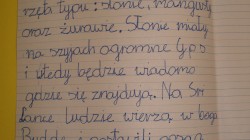 rzęta typu: słonie, mangusty
oraz żurawie. Słonie miały
na szyjach ogromne Gps
i wtedy będzie wiadomo
gdzie się znajdują. Na Sri
Lance ludzie wierzą w boga
Buddę i